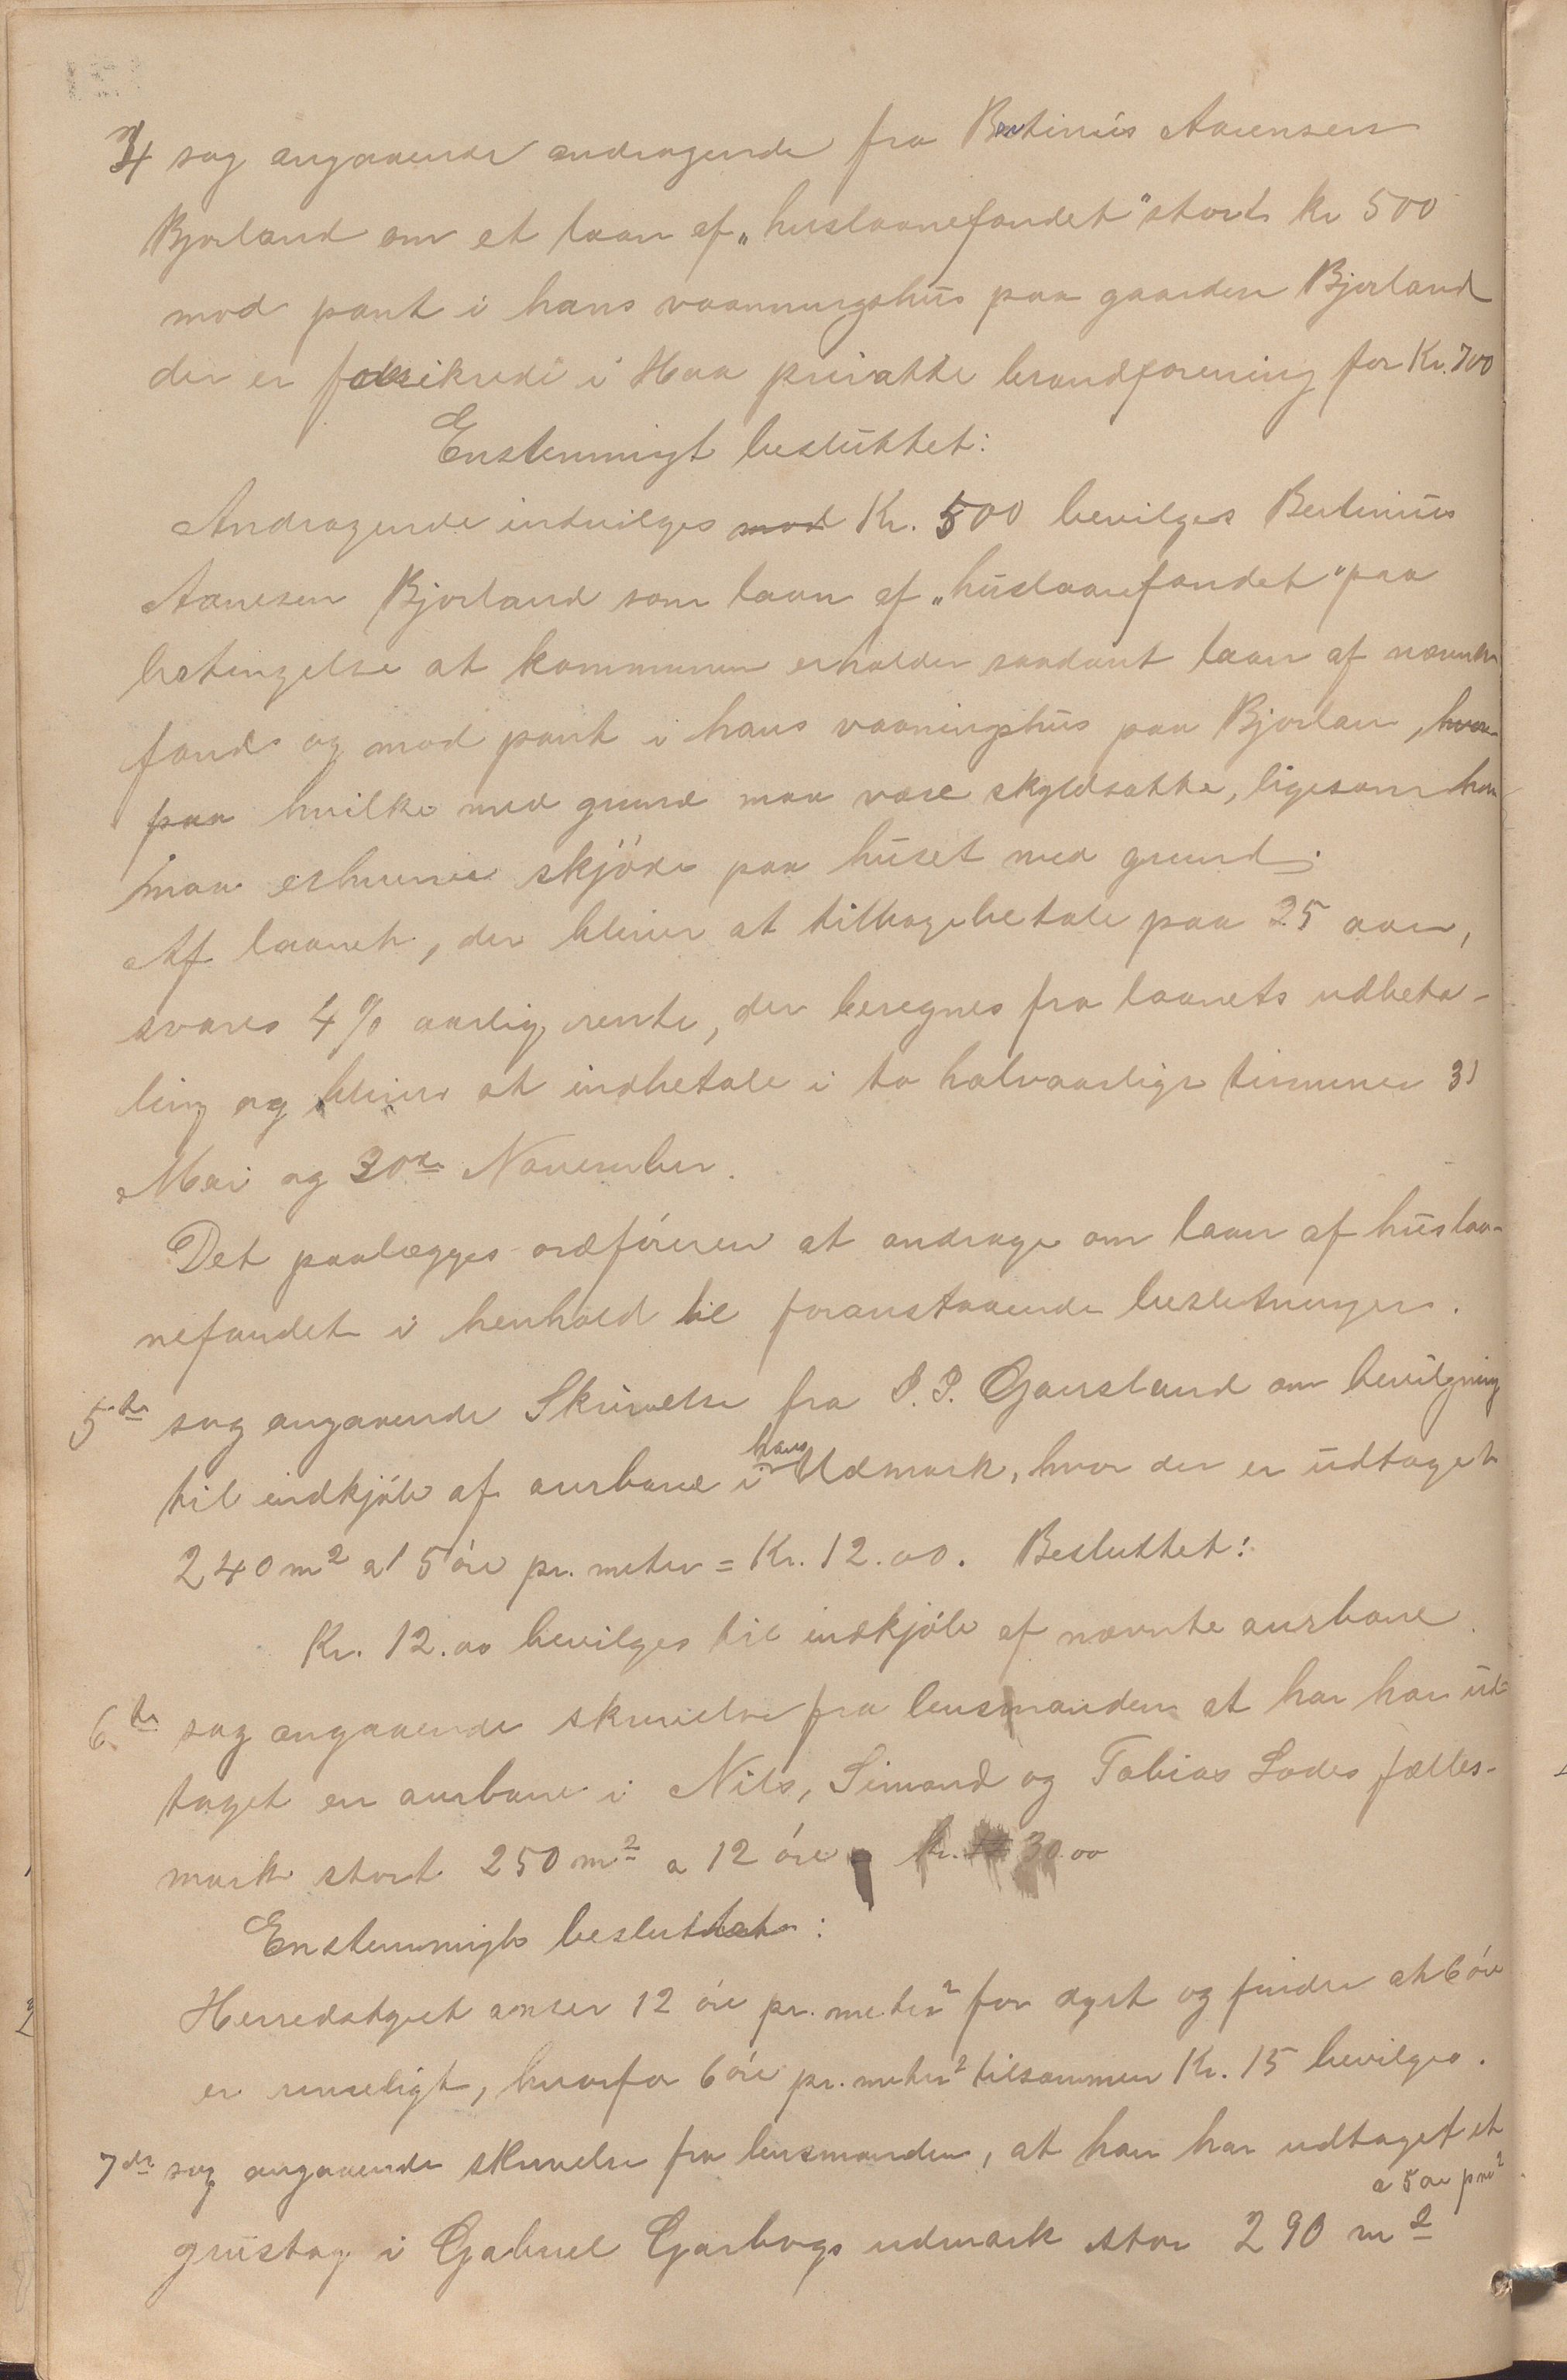 4 sag angaaende andragende fra Bertinius Aanensen
Bjorland om et laan af „huslaanefondet" stort kr 500
mod pant i hans vaaningshus paa gaarden Bjorland
der er forsikrede i Haa private brandforening for Kr. 700
Enstemmigt besluttet:
Andragende indvilges mod Kr. 500 bevilges Bertinius
Aanesen Bjorland som laan af „huslaanefondet" paa
betingelse at kommunen erholder saadant laan af nævnte
fond og mod pant i hans vaaningshus paa Bjorlan, hvor-
paa hvilke med grund maa være skyldsatte, ligesom han
maa erhverve skjöde paa huset med grund.
Af laanet, der bliver at tilbagebetale paa 25 aar,
svares 4% aarlig rente, der beregnes fra laanets udbeta-
ling og bliver at indbetale i to halvaarlige terminer 31
Mai og 30te November.
Det paalægges ordföreren at andrage om laan af huslaa-
nefondet i henhold til foranstaaende beslutninger.
5te sag angaaende Skrivelse fra P. P. Gausland om bevilgning
til indkjöb af aurbane i hans Udmark, hvor der er udtaget
240 m2 a 5 öre pr. meter = Kr. 12.00. Besluttet:
Kr. 12.00 bevilges til indkjöb af nævnte aurbane.
6te sag angaaende skrivelse fra lensmanden at har han ud-
taget en aurbane i Nils, Simond og Tobias Lodes fælles-
mark stort 250 m2 a 12 öre kr. 30.00
Enstemmigt besluttet:
Herredstyret anser 12 öre pr. meter2 for dyrt og finder at 6 öre
er rimeligt, hvorfor 6 öre pr. meter2 tilsammen Kr. 15 bevilges.
7de sag angaaende skrivelse fra lensmanden, at han har udtaget et
a 5 öre pr m2
grustag i Gabriel Garborgs udmark stor 290 m2